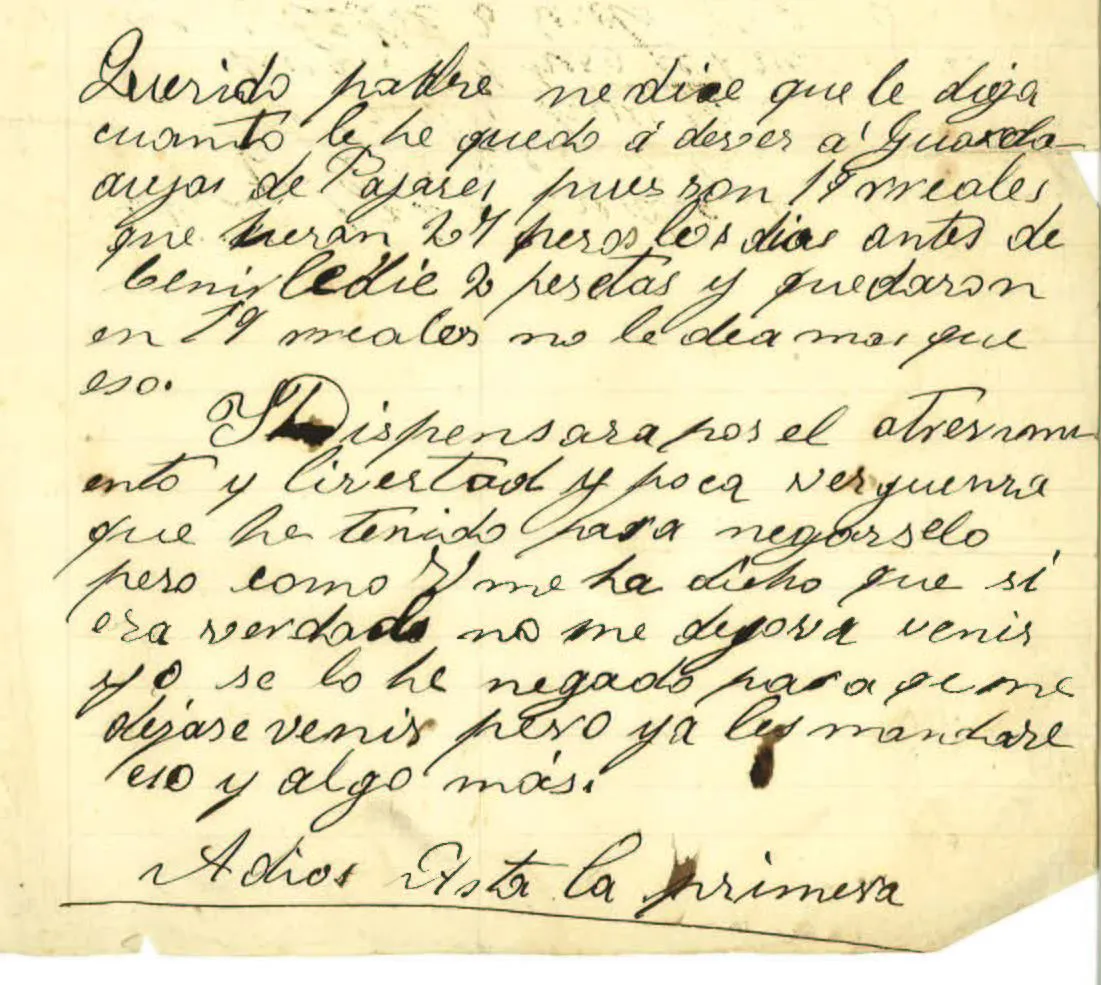 Querido padre me dice que le diga
cuanto le he quedo á dever á Guarda
aujas de Pajares pues son 19 rreales
que heran 27 pero los dias antes de
benir le die 2 pesetas y quedaron
en 19 rreales no le dea mas que
eso.
Dispensara por el atrevimi
ento y livertad y poca verguenza
que he tenido para negarselo
pero como V me ha dicho que si
era verdad no me dejava venir
yo se lo he negado para qe me
dejase venir pero ya les mandare
eso y algo más.
Adios Asta la primera